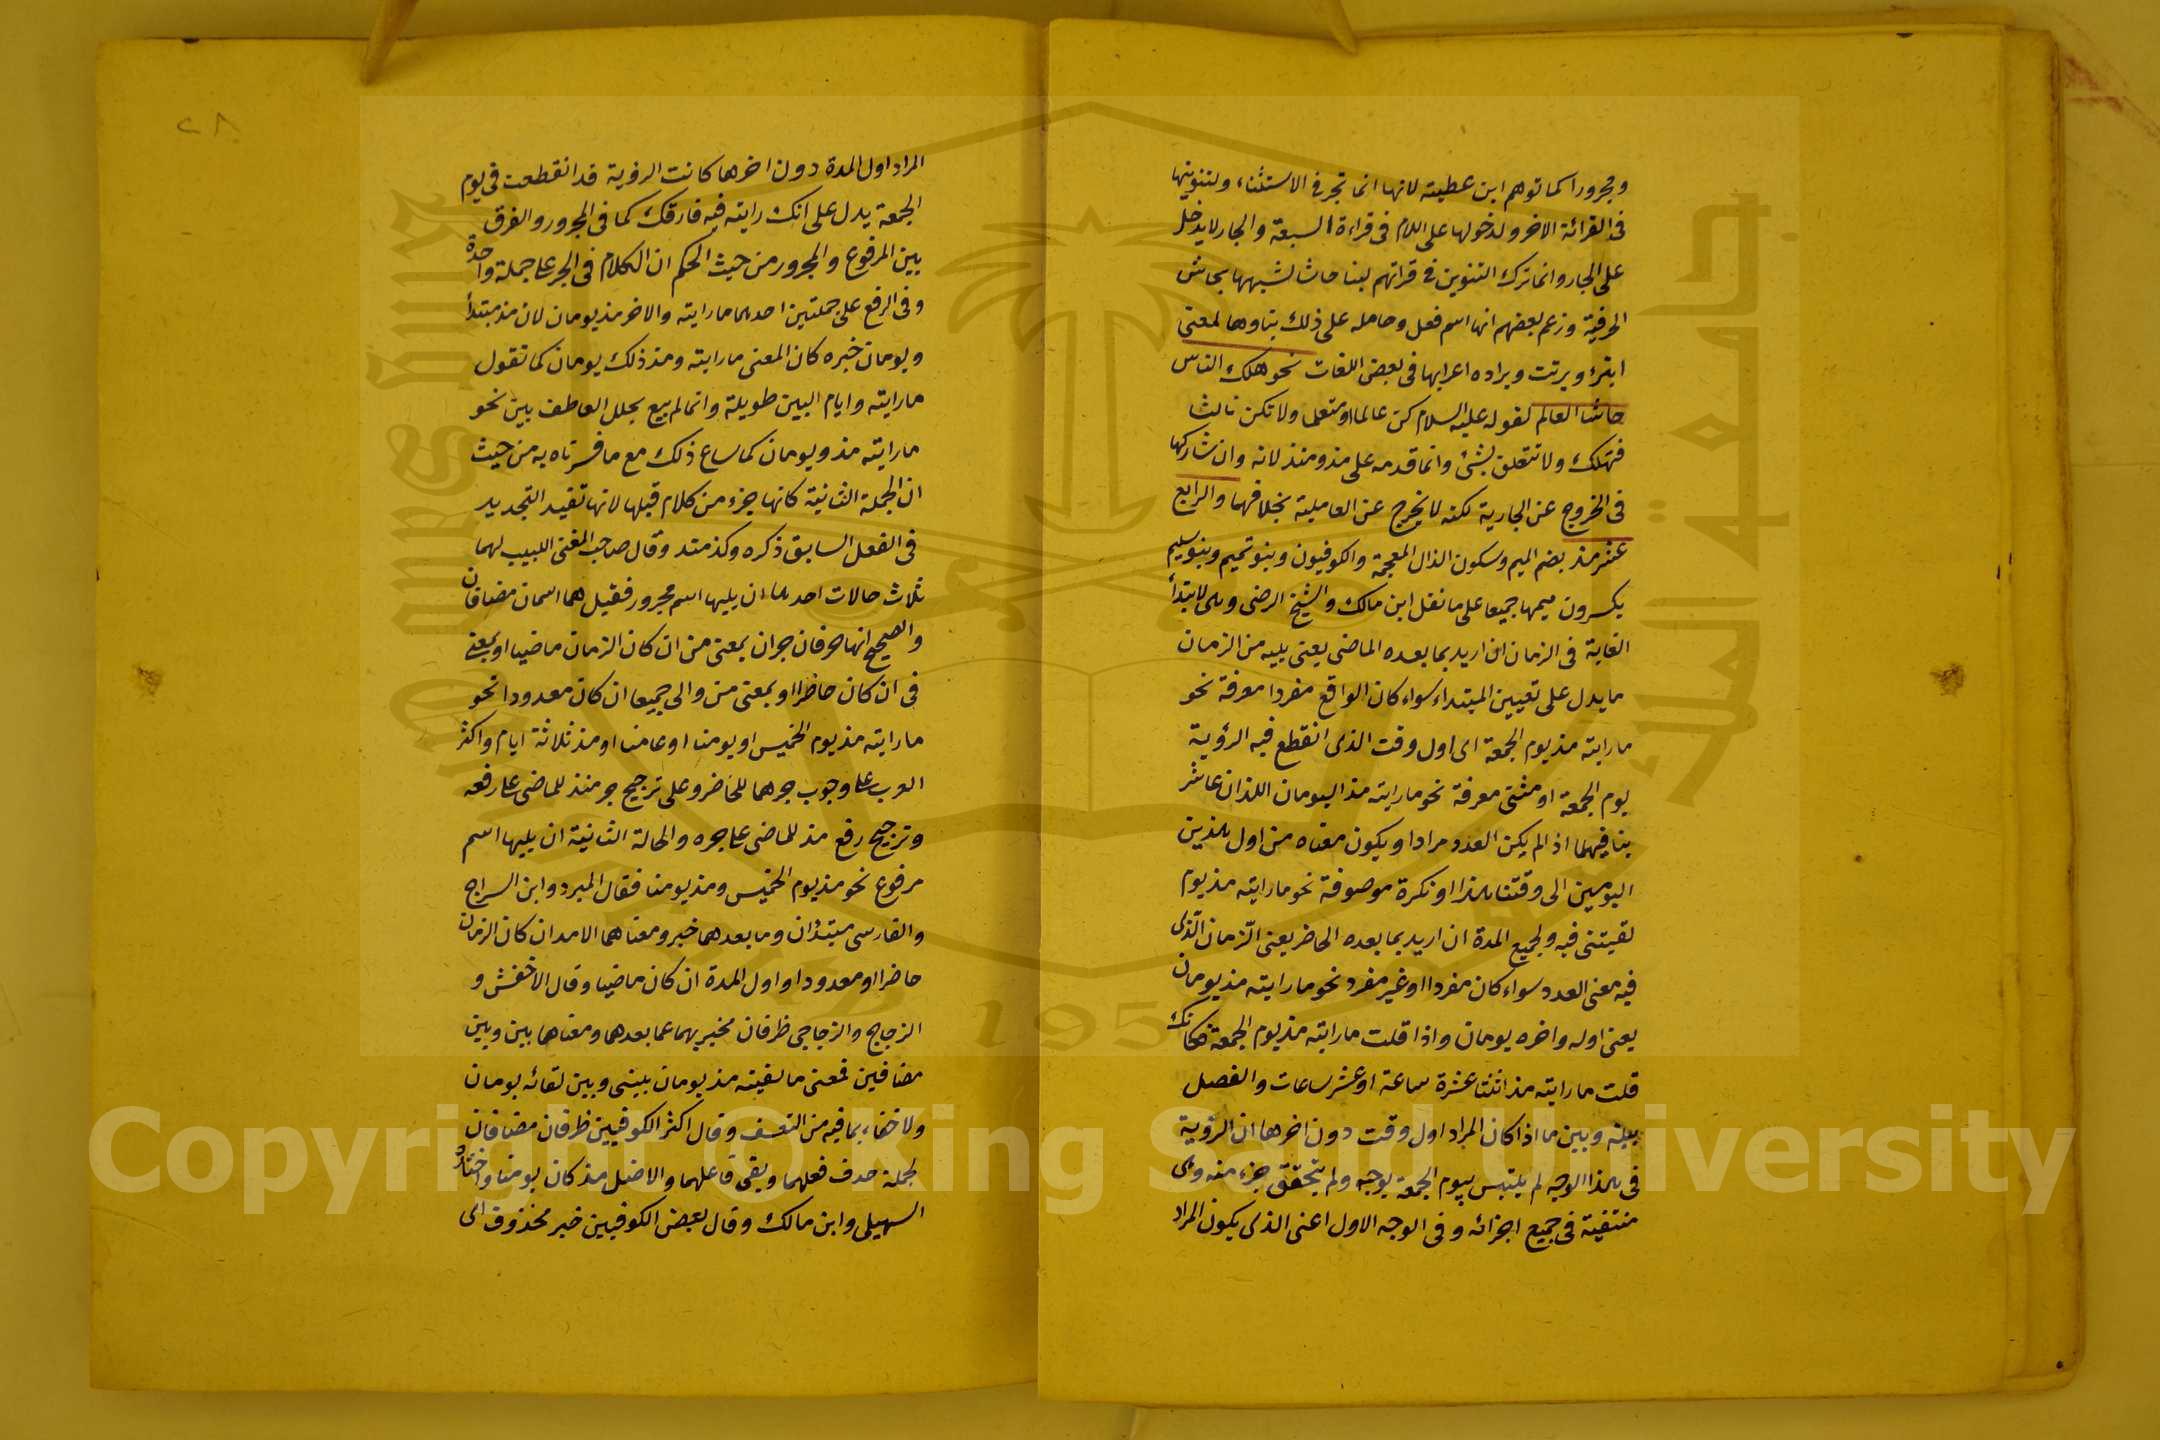 ومجرورا كما توهم ابن عطية لانها انما تجر فى الاستثناء ولتنوينها
فى القرائة الاخر ولدخولها على اللام فى قراءة السبعة والجار لا يدخل
على الجار وانما ترك التنوين فى قراتهم لبنا حاشا لشبهها بحاش
الحرفية وزعم بعضهم انها اسم فعل وحامله على ذلك بناوها لمعنى
ابتر وبرئت ويراده اعرابها فى بعض اللغات نحو هلك الناس
حاشا العالم لقوله عليه السلام كن عالما او متعلما ولا تكن ثالثا
فتهلك ولا تتعلق بشئ وانما قدمه على مذ ومنذ لانه وان شاركها
فى الخروج عن الجارية لكنه لا يخرج عن العاملية بخلافهما والرابع
عشر مذ بضم الميم وسكون الذال المعجمة والكوفيون وبنو تميم وبنو سليم
يكسرون ميمها جميعا على ما نقل ابن مالك والشيخ الرضى وهى لابتدأ
الغاية فى الزمان ان اريد بما بعده الماضى يعنى يليه من الزمان
ما يدل على تعيين المبتداء سواء كان الواقع مفردا معرفة نحو
مارايته مذ يوم الجمعة اى اول وقت الذى انقطع فيه الرؤية
يوم الجمعة او مثنى معرفة نحو مارايته مذ اليومان اللذان عاشر
بنا فيهما اذ الم يكن العدد مرادا ويكون معناه من اول هذين
اليومين الى وقتنا هذا او نكرة موصوفة نحو مارايته مذ يوم
لقيتنى فيه ولجميع المدة ان اريد بما بعده الحاضر يعنى الزمان الذى
فيه معنى العدد سواء كان مفردا او غير مفرد نحو مارايته مذ يومان
يعنى اوله واخره يومان واذا قلت مارايته مذ يوم الجمعة فكانك
قلت مارايته مذ اثنتا عشرة ساعة او عشر ساعات والفصل
بينه وبين ما اذا كان المراد اول وقت دون اخرها ان الرؤية
فى هذا الوجه لم يلتبس بيوم الجمعة بوجه ولم يتحقق جزء منه وهى
منتفية فى جميع اجزائه وفى الوجه الاول اعنى الذى يكون المراد
٢٨
المراد اول المدة دون اخرها كانت الرؤية قد انقطعت فى يوم
الجمعة يدل على انك رايته فيه فارقك كما فى المجرور والفرق
بين المرفوع والمجرور من حيث الحكم ان الكلام فى الجر على جملة واحدة
وفى الرفع على جملتين احدهما مارايته والاخر مذ يومان لان مذ مبتدأ
ويومان خبره كان المعنى مارايته ومذ ذلك يومان كما تقول
مارايته وايام البين طويلة وانما لم يبع بخلل العاطف بين نحو
مارايته مذ ويومان كما ساع ذلك مع ما فسرناه به من حيث
ان الجملة الثانية كانها جزء من كلام قبلها لانها تفيد التجديد
فى الفعل السابق ذكره وكذ منذ وقال صاحب المغنى اللبيب لهما
ثلاث حالات احدها ان يليها اسم مجرور فقيل هما اسمان مضافان
والصحيح انها حرفان جران بمعنى من ان كان الزمان ماضيا او بمعنى
فى ان كان حاضرا او بمعنى من والى جميعا ان كان معدودا نحو
مارايته مذ يوم الخميس او يومنا او عامنا او مذ ثلاثة ايام واكثر
العرب على وجوب جرهما للحاضر وعلى ترجيح جر منذ للماضى على رفعه
وترجيح رفع مذ للماضى على جره والحالة الثانية ان يليها اسم
مرفوع نحو مذ يوم الخميس ومذ يومنا فقال المبرد وابن السراج
والفارسى مبتدأن وما بعدهما خبر ومعناهما الامد ان كان الزمان
حاضرا او معدودا او اول المدة ان كان ماضيا وقال الاخفش و
الزجاج والزجاجى ظرفان مخبر بهما عما بعدهما ومعناهما بين وبين
مضافين فمعنى مالقيته مذ يومان بينى وبين لقائه يومان
ولا خفاء بما فيه من التعسف وقال اكثر الكوفيين ظرفان مضافان
لجملة حدف فعلهما وبقى فاعلهما والاصل مذ كان يومنا واختاره
السهيلى وابن مالك وقال بعض الكوفيين خبر محذوف اى
Copyright © King Saud University
جامعة الملك سعود
1957